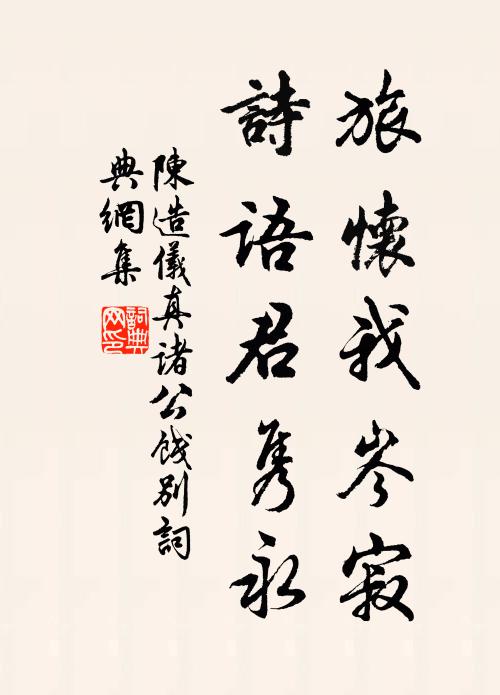 旅懷我岑寂
詩語君隽永
陳造儀真諸公餞別詞
典網集
詞典网印